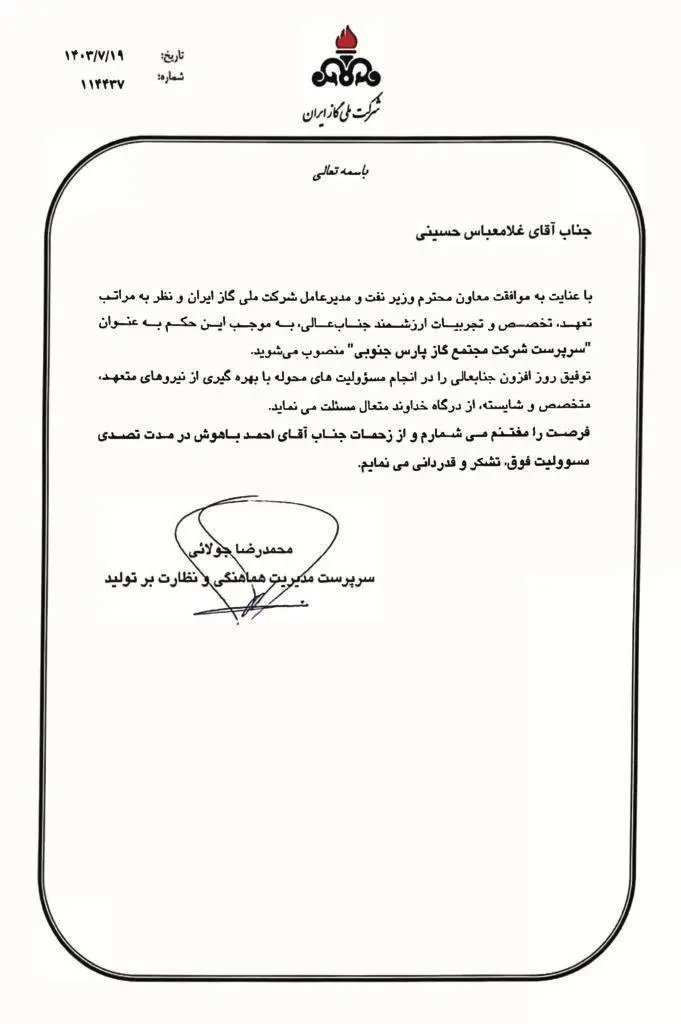 تاریخ: ۱۴۰۳/۷/۱۹
شماره: ۱۱۴۴۳۷
شرکت ملی گاز ایران
باسمه تعالی
جناب آقای غلامعباس حسینی
با عنایت به موافقت معاون محترم وزیر نفت و مدیرعامل شرکت ملی گاز ایران و نظر به مراتب
تعهد، تخصص و تجربیات ارزشمند جناب‌عالی، به موجب این حکم به عنوان
"سرپرست شرکت مجتمع گاز پارس جنوبی" منصوب می‌شوید.
توفیق روز افزون جنابعالی را در انجام مسؤولیت های محوله با بهره گیری از نیروهای متعهد،
متخصص و شایسته، از درگاه خداوند متعال مسئلت می نماید.
فرصت را مغتنم می شمارم و از زحمات جناب آقای احمد باهوش در مدت تصدی
مسوولیت فوق، تشکر و قدردانی می نمایم.
محمدرضا جولائی
سرپرست مدیریت هماهنگی و نظارت بر تولید